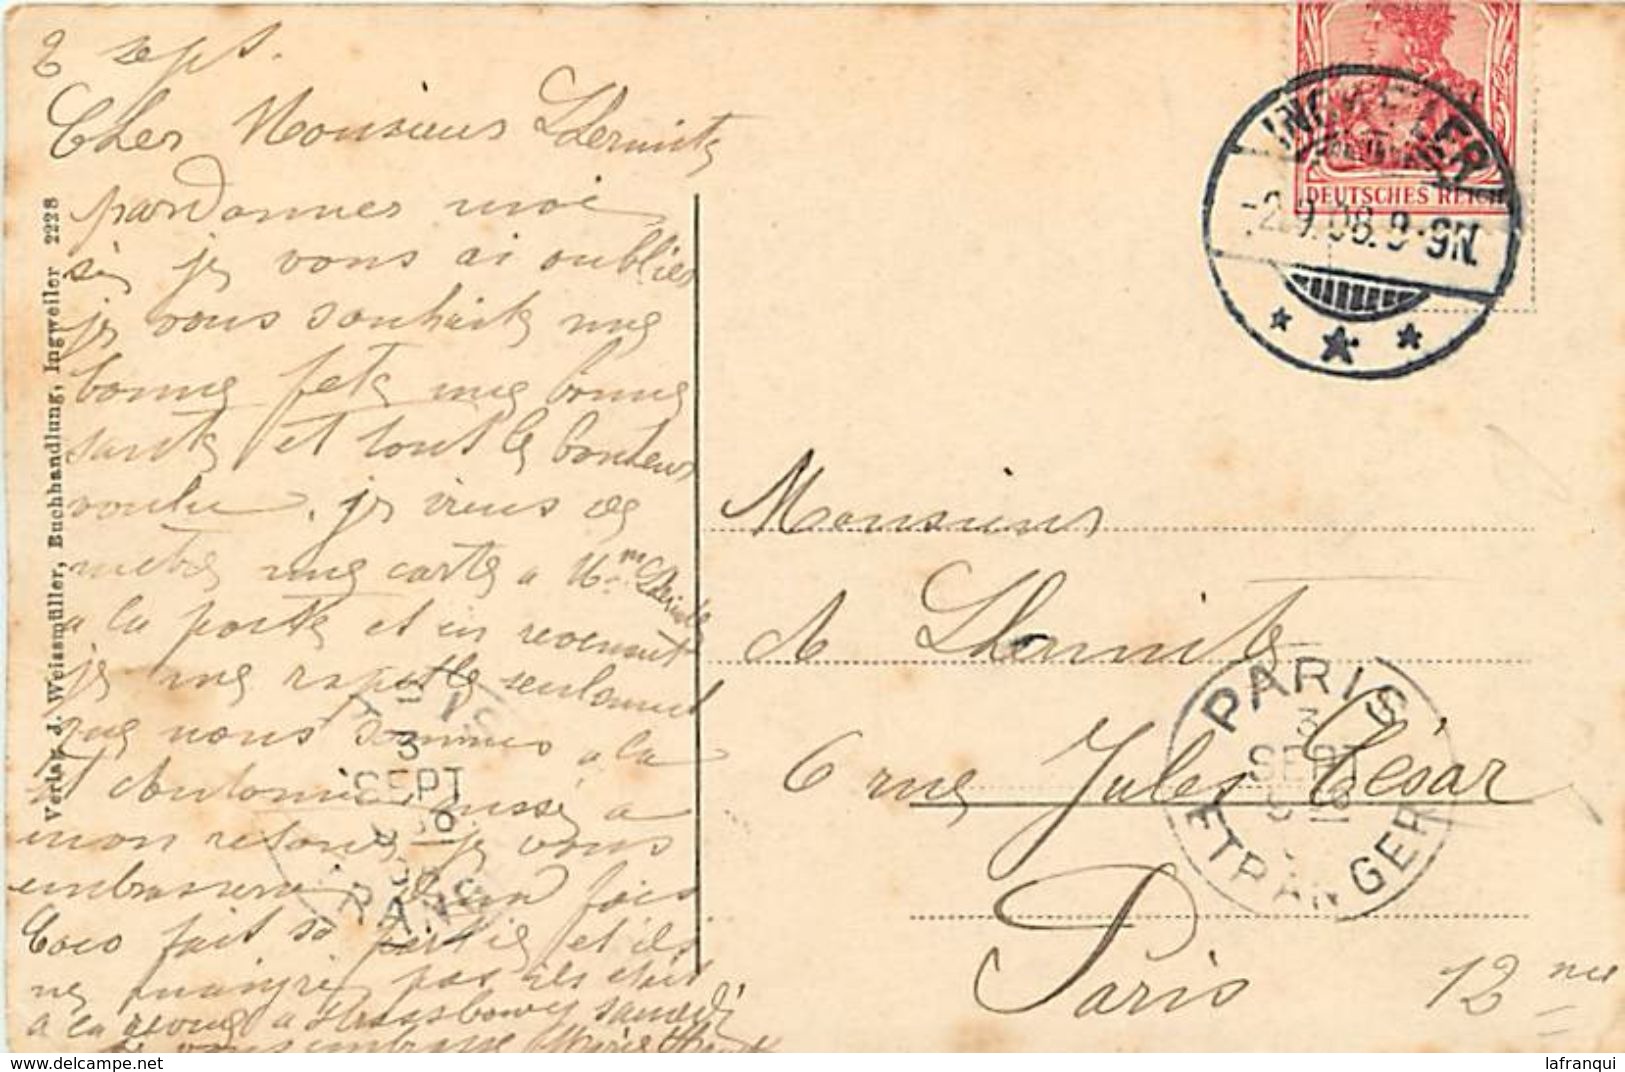 2 sept.
Cher Monsieur Lhermitte
pardonner moi
si je vous ai oublier
je vous souhaite une
bonne fete une bonne
sante et tout le bonheur
voulu. je viens de
metre une carte a Mme
a la poste et en revenant
je me rapelle seulement
que nous sommes a la
aussi a
mon retour je vous
embrasserai d'un fois
Coco fait sa partie et ils
ne pas ils etait
a la revue a Strassbourg samedi
vous embrasse Marie
Verlag J. Weissmüller, Buchhandlung, Ingweiler 2228
DEUTSCHES REICH
INGWEILER
-2.9.08. 9-9N.
Monsieur
A Lhermitte
6 rue Jules César
Paris 12me
PARIS
3
SEPT
08
ETRANGER
3
SEPT
08
delcampe.net
lafranqui